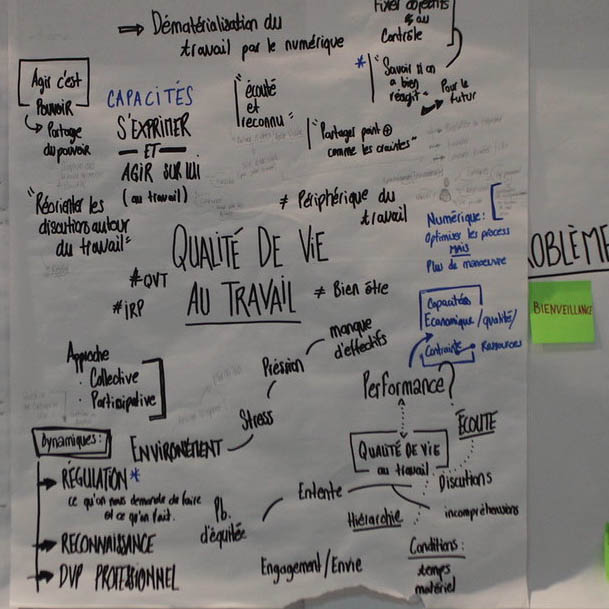 Fixer objectifs
& au
Contrôle
⇒ Dématérialisation du
travail par le numérique
* "Savoir si on
a bien
réagit"
Pour le
futur
Agir c'est
POUVOIR
↳ Partage
du pouvoir
CAPACITÉS
S'EXPRIMER
— ET —
AGIR SUR LUI
(au travail)
"écouté
et
reconnu"
"Partager point ⊕
comme les craintes"
"Réorienter les
discutions autour
du travail"
≠ Périphérique du
travail
Numérique :
Optimiser les process
MAIS
Plus de manoeuvre
QUALITÉ DE VIE
AU TRAVAIL
≠ Bien être
#QVT
#IRP
OBLÈME
BIENVEILLANCE
Capacités
Economique/qualité/
Contrainte
Ressources
Approche
· Collective
· Participative
manque
d'effectifs
Préssion
Stress
ENVIRONEMENT
Performance?
ÉCOUTE
QUALITÉ DE VIE
au travail
Dynamiques :
→ RÉGULATION *
ce qu'on nous demande de faire
et ce qu'on fait.
→ RECONNAISSANCE
→ DVP PROFESSIONNEL
Pb.
d'équitée
Entente
Discutions
incompréhensions
Hiérarchie
Engagement/Envie
Conditions :
temps
matériel